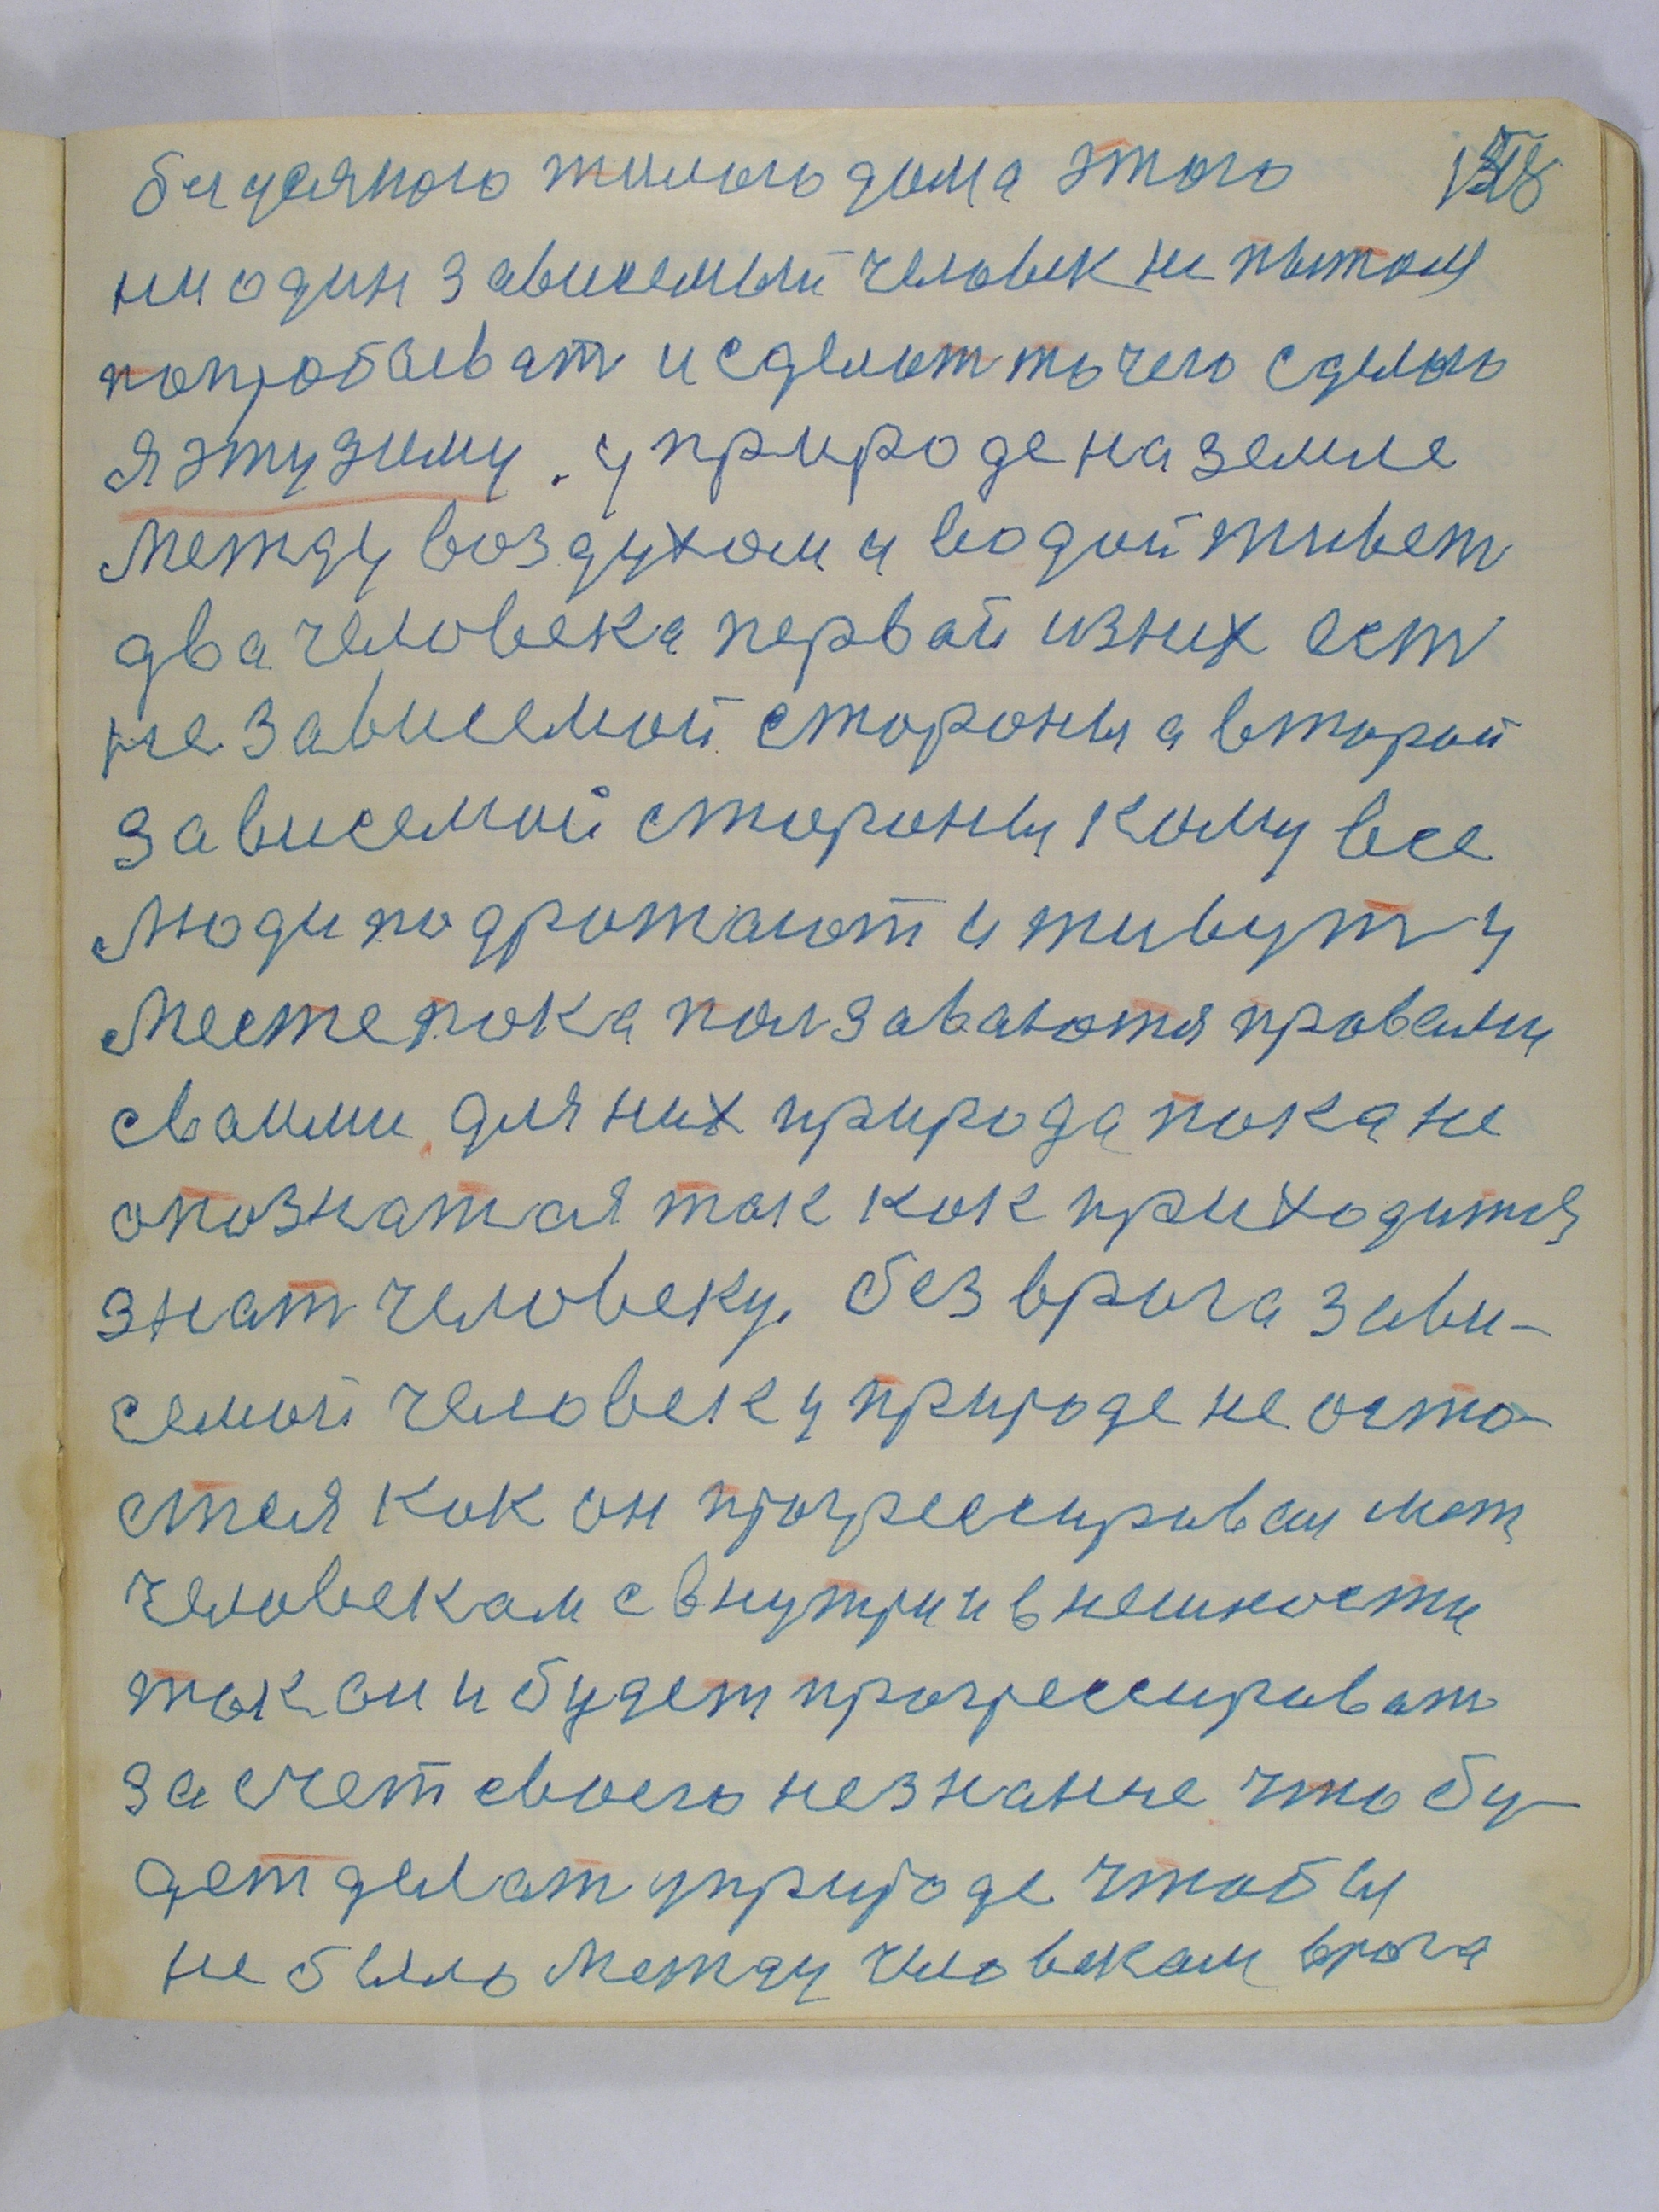 бн усяпого жилого дома этого
ни один зависемый человек не пыталя
попробоват и сделат то чего сделаю
я эту зиму. у природе на земле
между воздухом и водой живет
два человека первай из них ест
независемой стороны а второй
зависемой стороны кому все
люди подрожают и живут у
месте пока ползаваются правами
сваими для них природа пока не
опозналася так как приходится
знат человеку, без врага зави-
семой человек у природе не оста-
ется как он прогрессировал меж
человекам с внутри и внешности
так он и будет прогрессироват
за счет своего незнание что бу-
дет делат у природе чтобы
не было между человекам врага